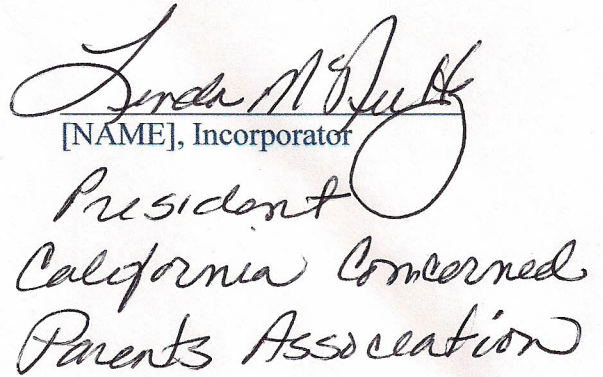 Linda M
[NAME], Incorporator
President
California Concerned
Parents Association